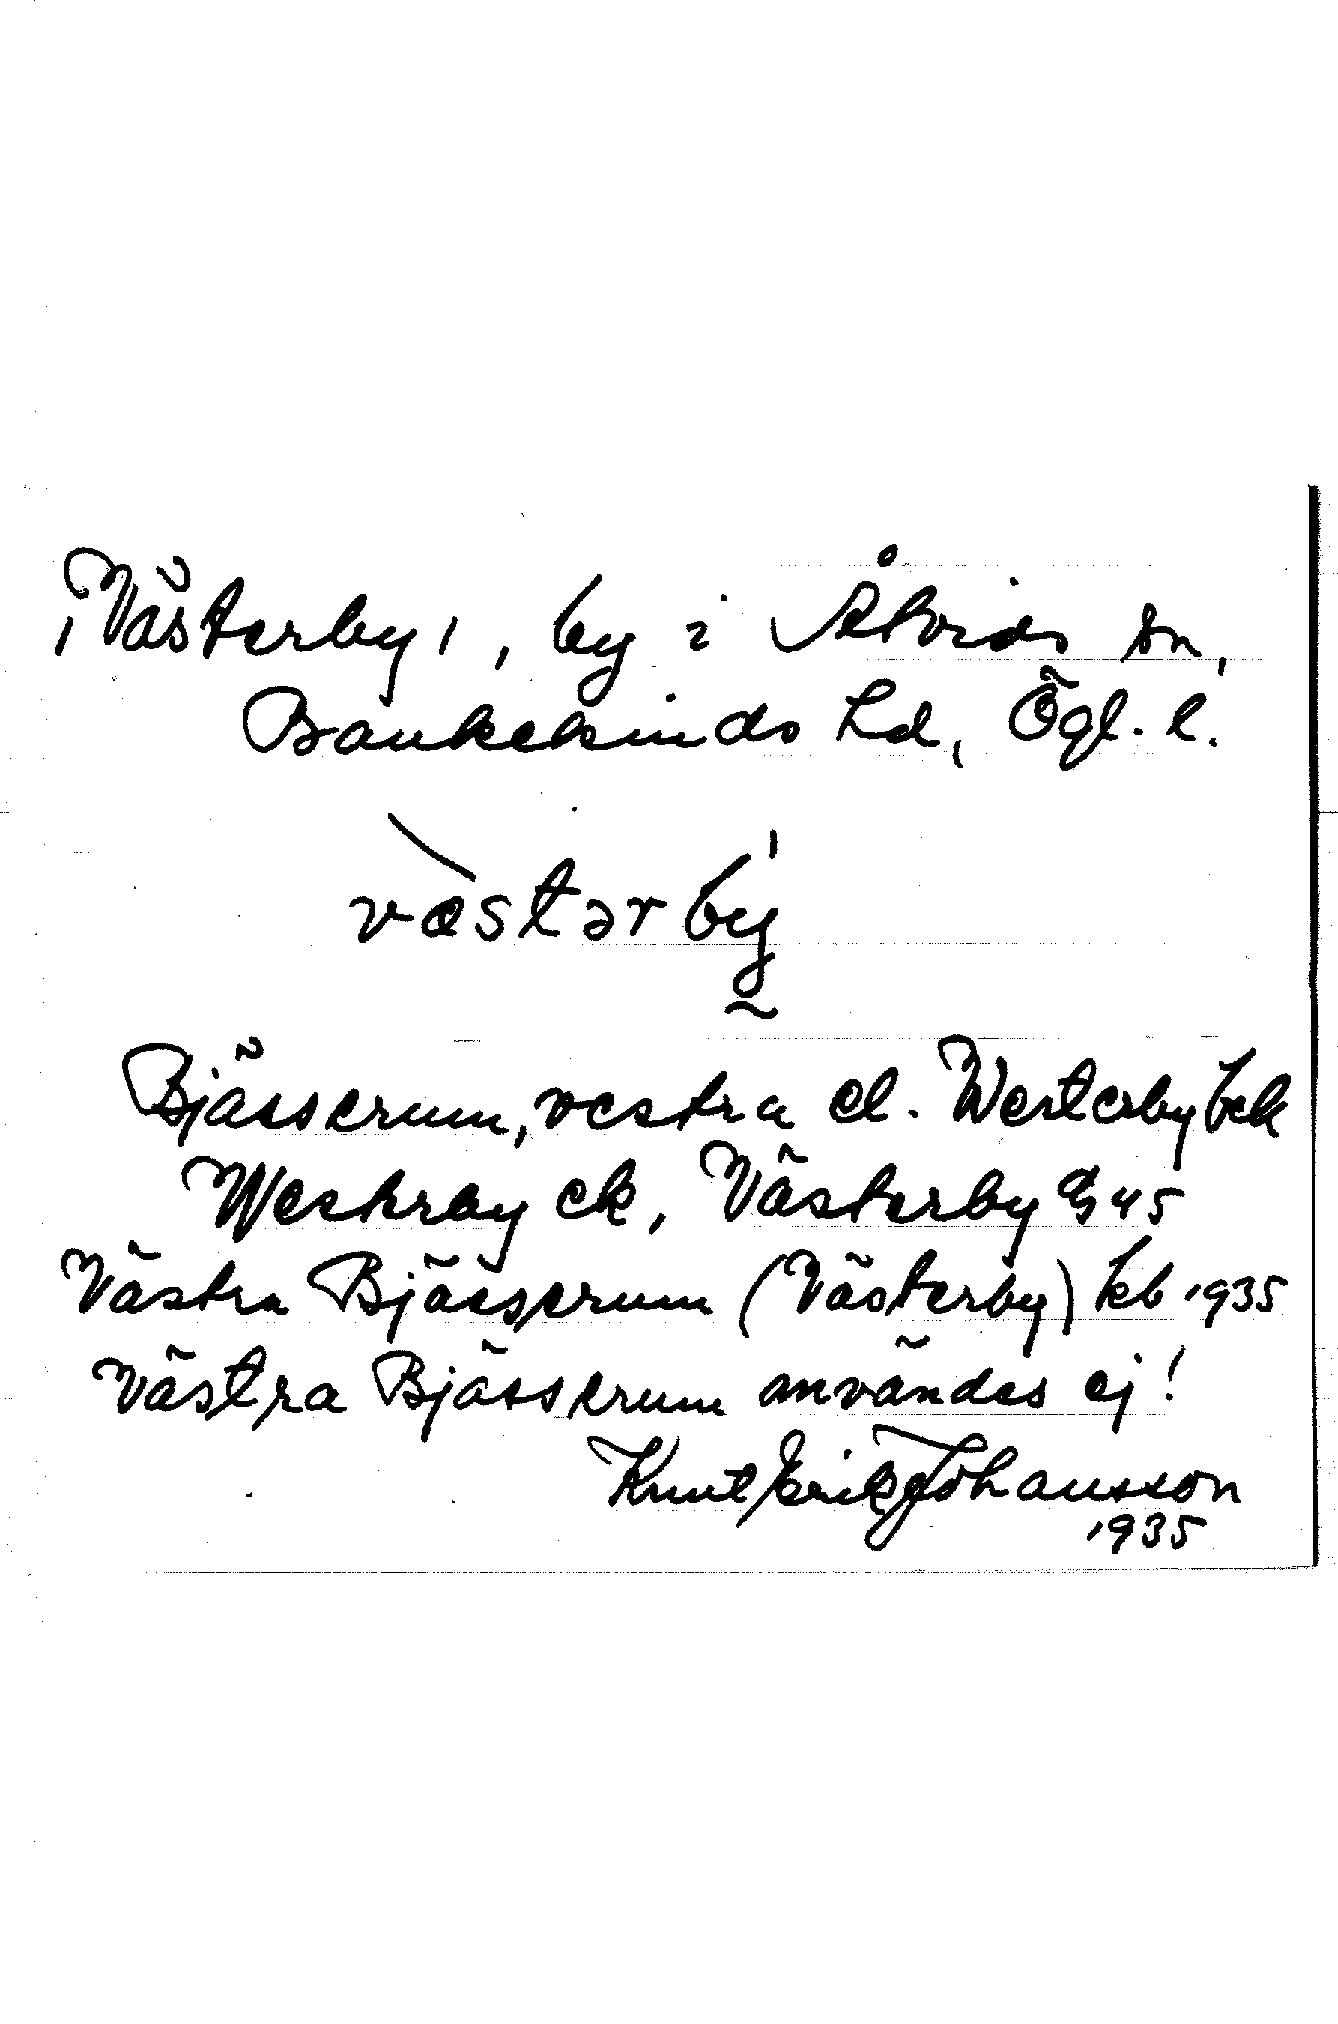 ˌVästerbyˈ, by i Åtvids sn,
Bankekinds hd, Ögl. l.
væ̀stərby̰ˈ
Bjässerum, vestra el. Westerby bek
Westerby ek, Västerby G 45
Västra Bjässerum (Västerby) kb 1935
Västra Bjässerum användes ej!
Knut Erik Johansson
1935